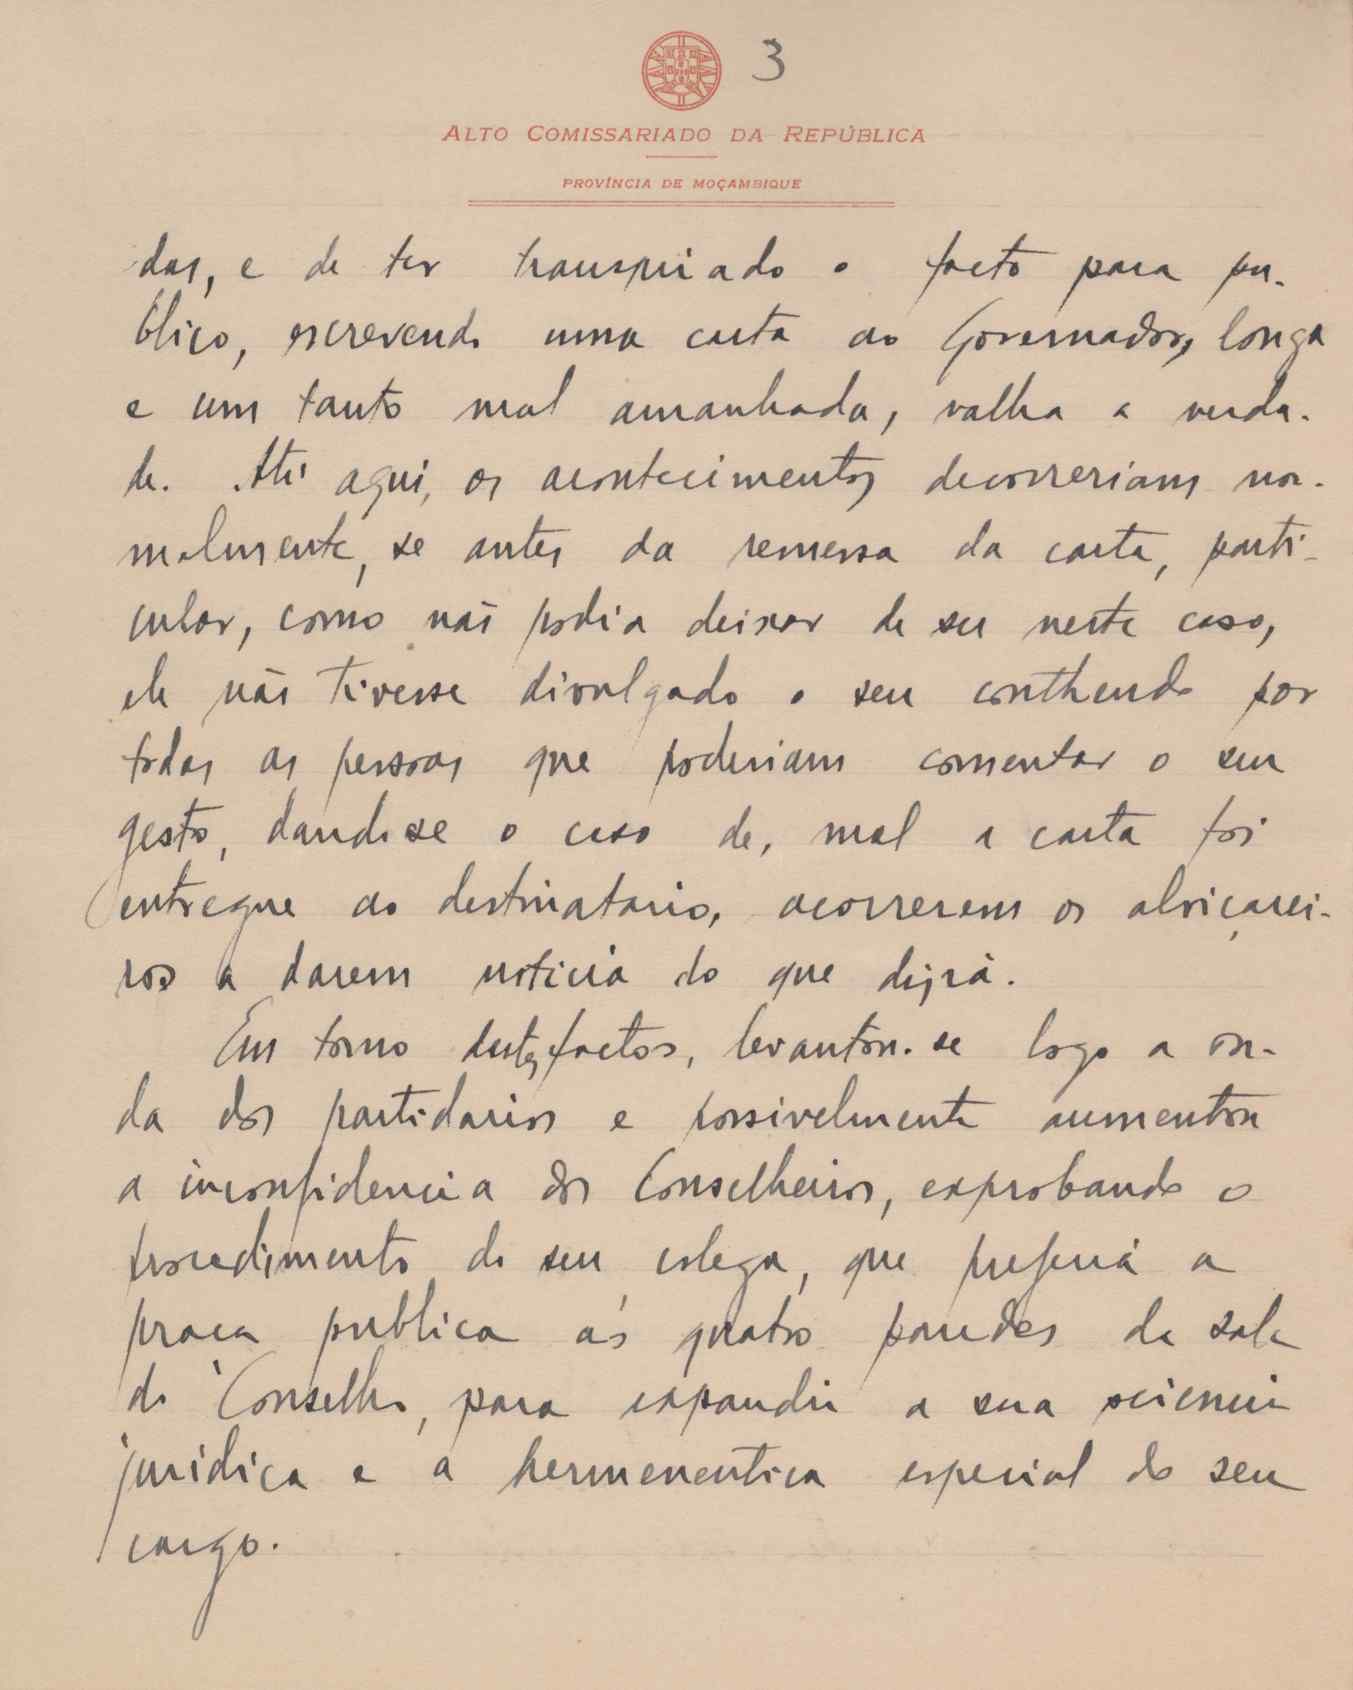 3
ALTO COMISSARIADO DA REPÚBLICA
PROVÍNCIA DE MOÇAMBIQUE
das, e de ter transpirado o facto para pu-
blico, escrevendo uma carta ao Governador, longa
e um tanto mal amanhada, valha a verda-
de. Até aqui, os acontecimentos decorreriam nor-
malmente, se antes da remessa da carta, parti-
cular, como não podia deixar de ser neste caso,
ele não tivesse divulgado o seu conthendo por
todas as pessoas que poderiam comentar o seu
gesto, dando-se o caso de, mal a carta foi
entregue ao destinatario, acorrerem os alviçarei-
ros a darem noticia do que dizia.
Em torno destes factos, levantou-se logo a on-
da dos partidarios e possivelmente aumentou
a inconfidencia dos Conselheiros, exprobando o
procedimento do seu colega, que preferiá a
praca publica ás quatro paredes da sala
do Conselho, para expandir a sua sciencia
juridica e a hermeneutica especial do seu
cargo.